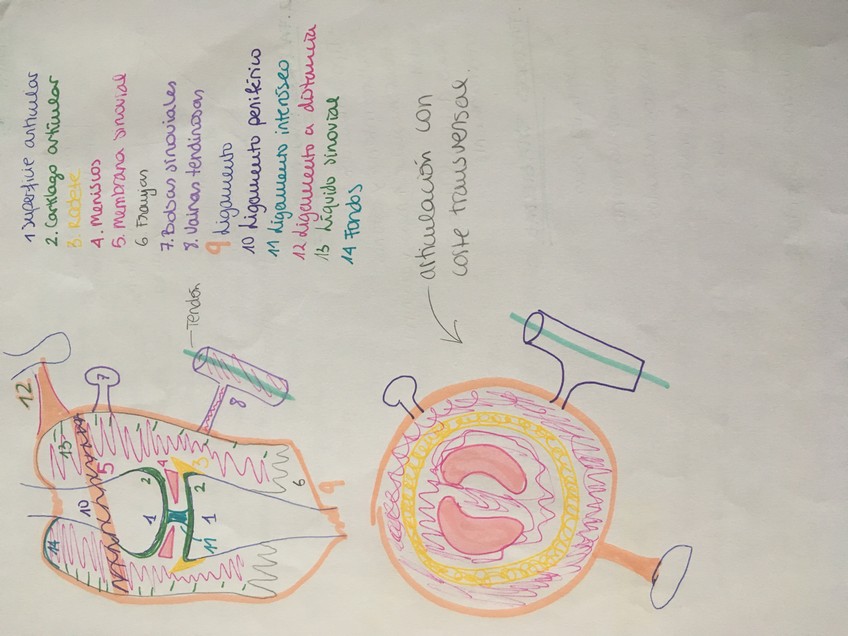 1 Superficie articular
2. Cartílago articular
3. Rodete
4. Meniscos
5. Membrana sinovial
6 Franjas
7. Bolsas sinoviales
8. Vainas tendinosas
9 Ligamento
10 Ligamento periférico
11 Ligamento interóseo
12 Ligamento a distancia
13 Líquido sinovial
14 Fondos
Tendón
12
7
13
8
5
10
4
3
2
2
6
9
1
1
14
11
articulación con
corte transversal.